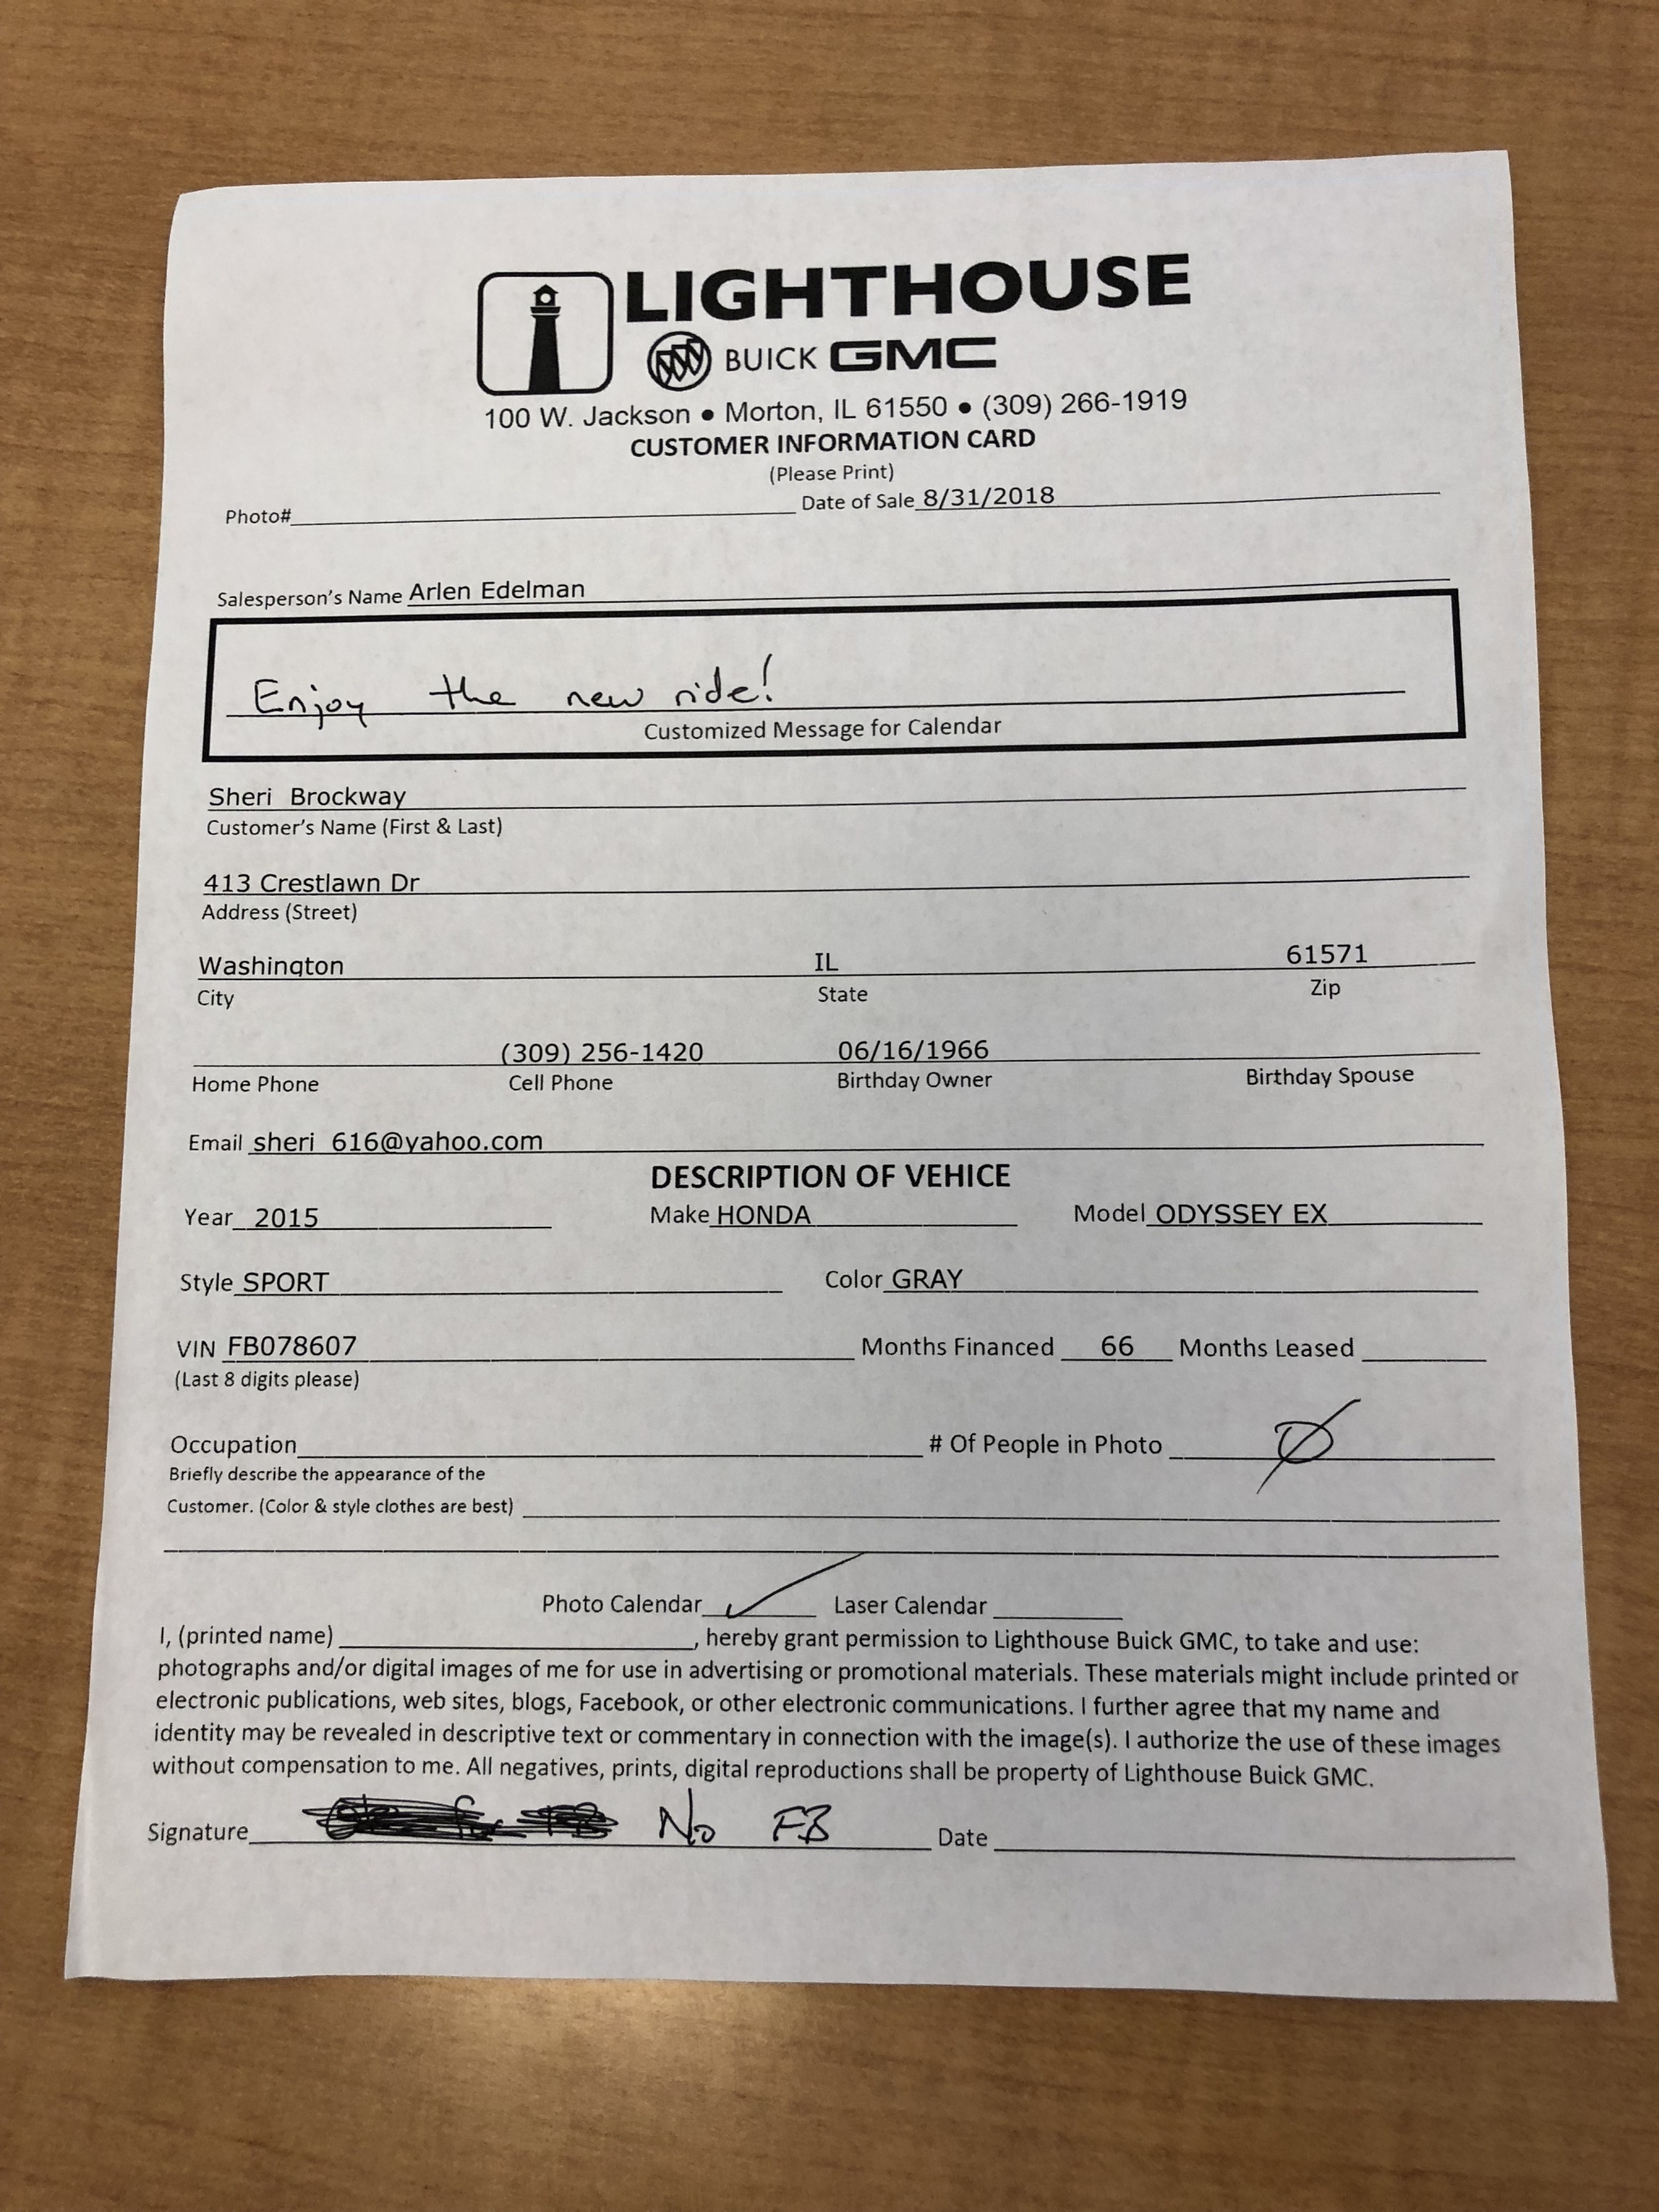 LIGHTHOUSE
BUICK GMC
100 W. Jackson • Morton, IL 61550 • (309) 266-1919
CUSTOMER INFORMATION CARD
(Please Print)
Photo# Date of Sale 8/31/2018
Salesperson's Name Arlen Edelman
Enjoy the new ride!
Customized Message for Calendar
Sheri Brockway
Customer's Name (First & Last)
413 Crestlawn Dr
Address (Street)
Washington IL 61571
City State Zip
(309) 256-1420 06/16/1966
Home Phone Cell Phone Birthday Owner Birthday Spouse
Email sheri_616@yahoo.com
DESCRIPTION OF VEHICE
Year 2015 Make HONDA Model ODYSSEY EX
Style SPORT Color GRAY
VIN FB078607 Months Financed 66 Months Leased
(Last 8 digits please)
Occupation # Of People in Photo Ø
Briefly describe the appearance of the
Customer. (Color & style clothes are best)
Photo Calendar ✓ Laser Calendar
I, (printed name) , hereby grant permission to Lighthouse Buick GMC, to take and use:
photographs and/or digital images of me for use in advertising or promotional materials. These materials might include printed or
electronic publications, web sites, blogs, Facebook, or other electronic communications. I further agree that my name and
identity may be revealed in descriptive text or commentary in connection with the image(s). I authorize the use of these images
without compensation to me. All negatives, prints, digital reproductions shall be property of Lighthouse Buick GMC.
Signature No FB Date